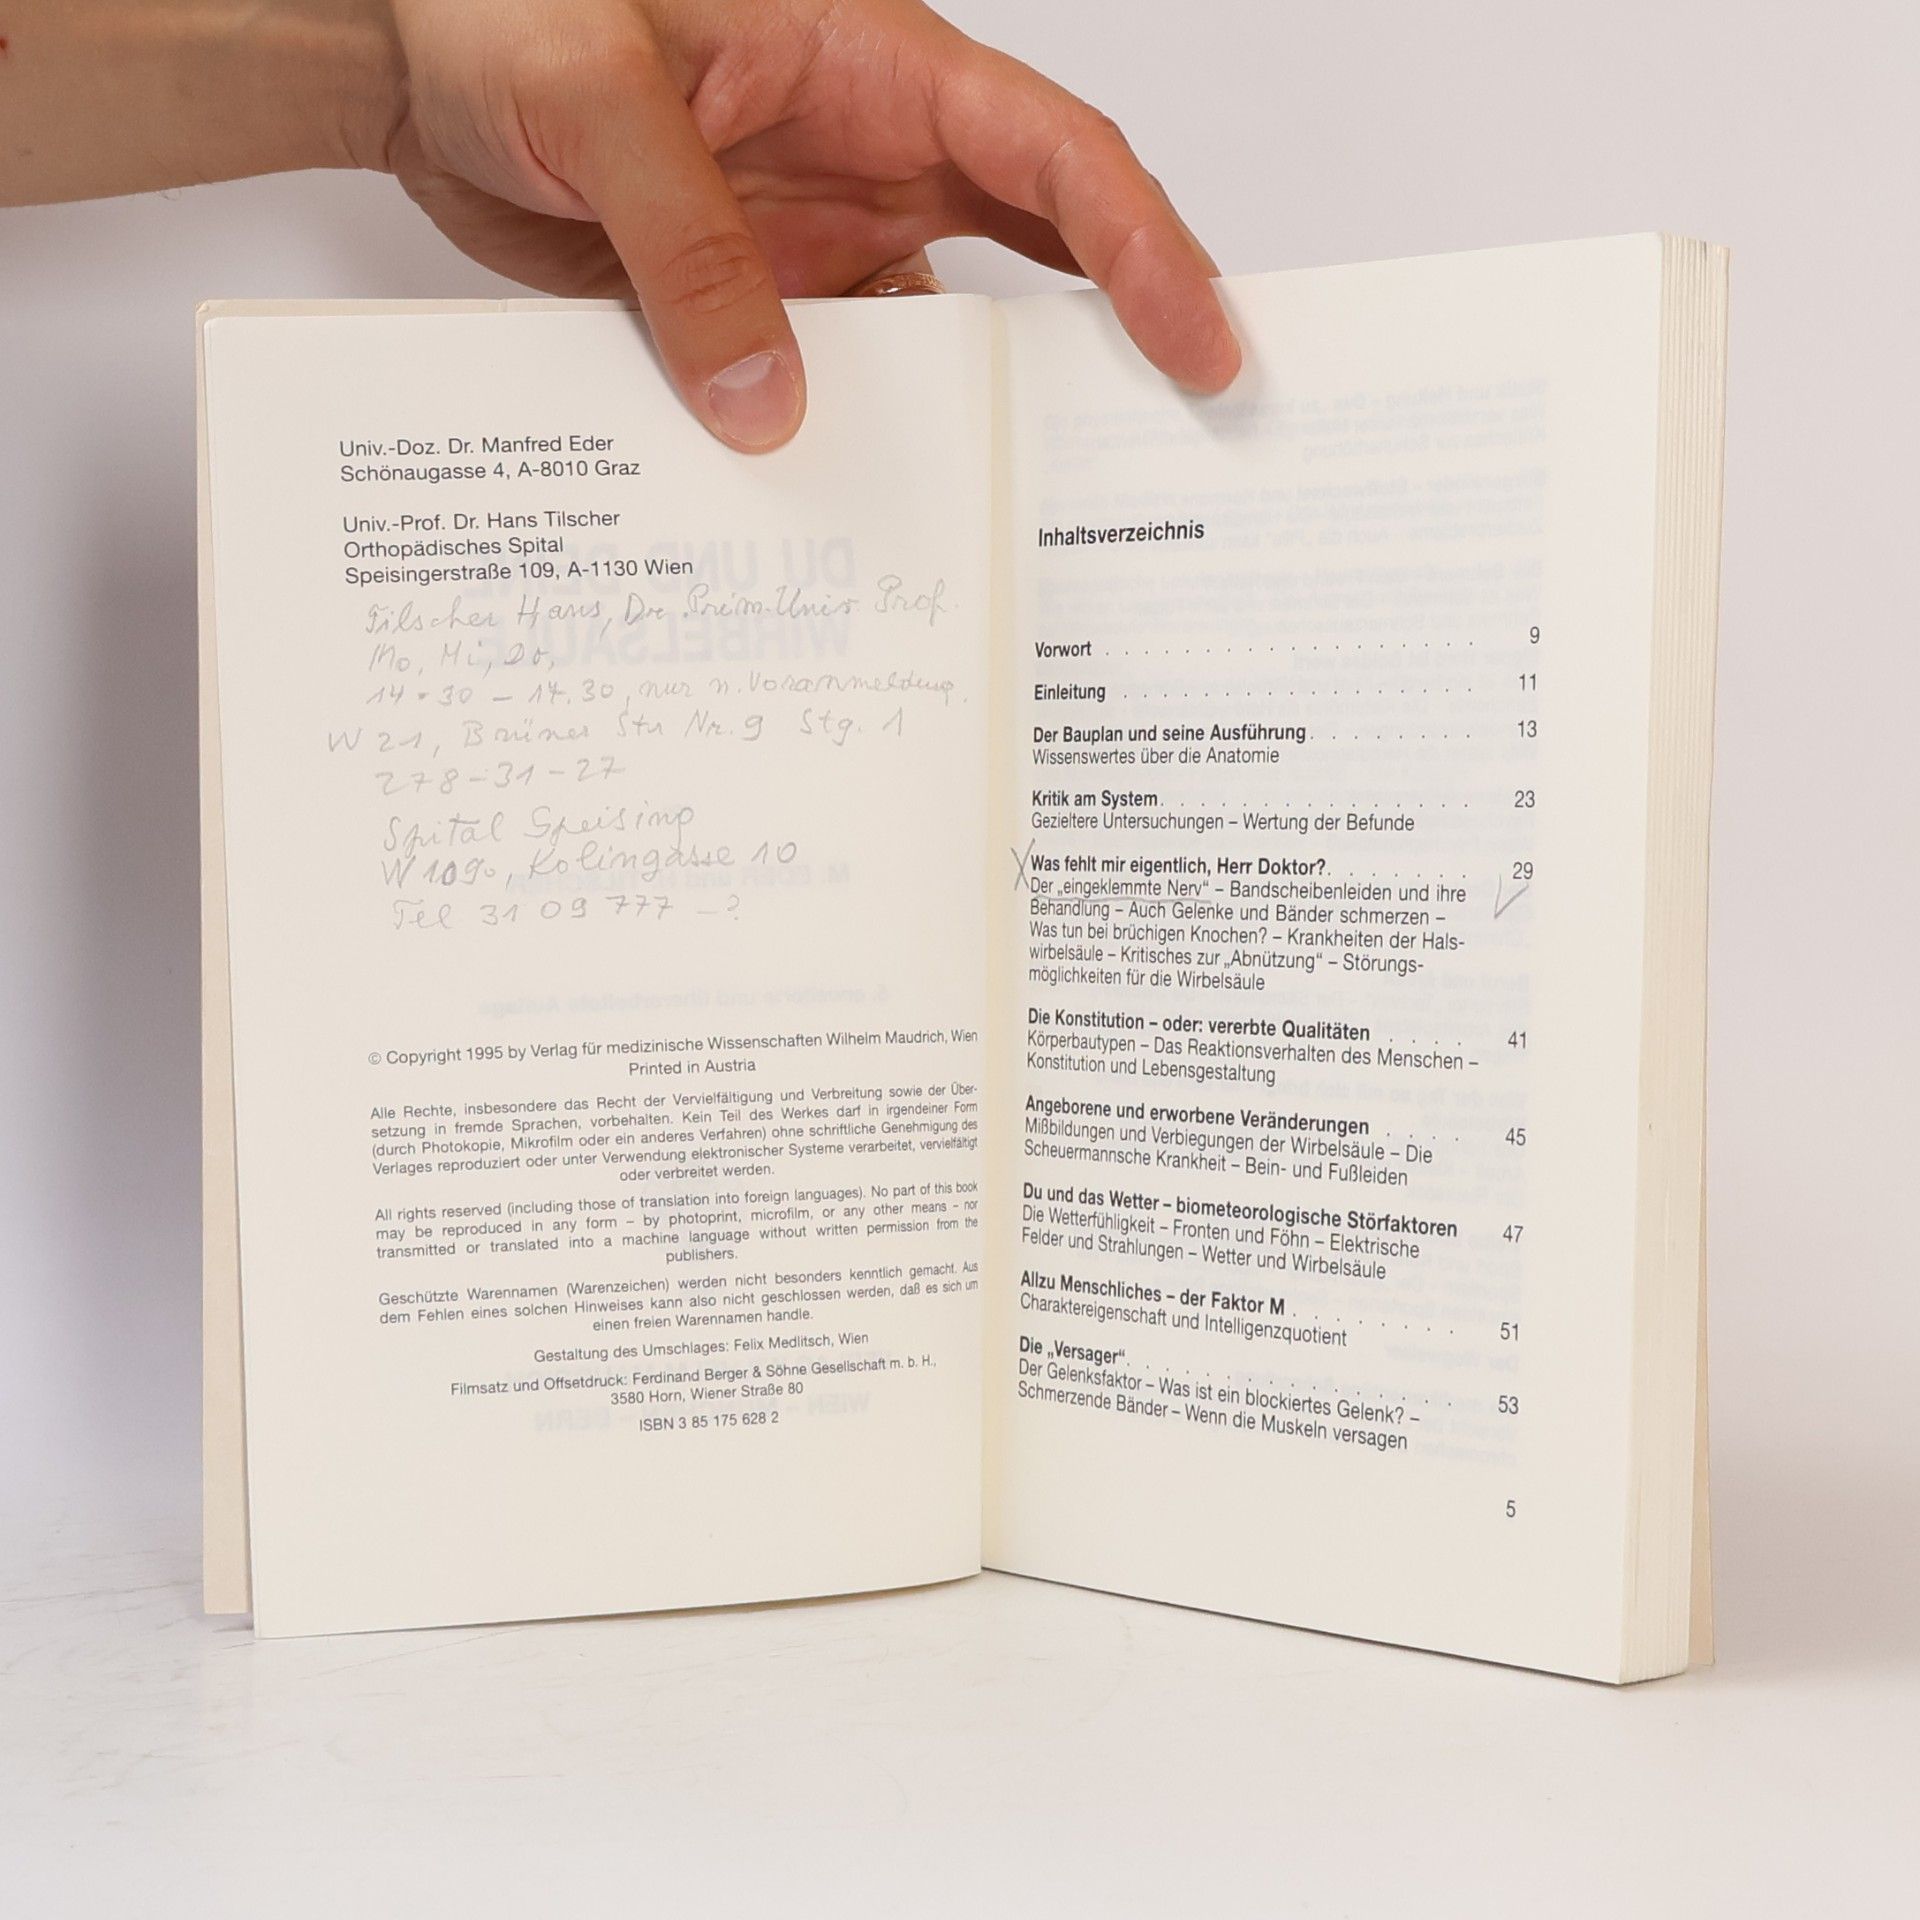 Univ.-Doz. Dr. Manfred Eder
Schönaugasse 4, A-8010 Graz
Univ.-Prof. Dr. Hans Tilscher
Orthopädisches Spital
Speisingerstraße 109, A-1130 Wien
Tilscher Hans, Dr. Prim. Univ. Prof.
Mo, Mi, Do,
14.30 – 17.30, nur n. Voranmeldung.
W 21, Brüner Str Nr. 9 Stg. 1
278-31-27
Spital Speising
W 1090, Kolingasse 10
Tel 31 09 777 – ?
© Copyright 1995 by Verlag für medizinische Wissenschaften Wilhelm Maudrich, Wien
Printed in Austria
Alle Rechte, insbesondere das Recht der Vervielfältigung und Verbreitung sowie der Über-
setzung in fremde Sprachen, vorbehalten. Kein Teil des Werkes darf in irgendeiner Form
(durch Photokopie, Mikrofilm oder ein anderes Verfahren) ohne schriftliche Genehmigung des
Verlages reproduziert oder unter Verwendung elektronischer Systeme verarbeitet, vervielfältigt
oder verbreitet werden.
All rights reserved (including those of translation into foreign languages). No part of this book
may be reproduced in any form – by photoprint, microfilm, or any other means – nor
transmitted or translated into a machine language without written permission from the
publishers.
Geschützte Warennamen (Warenzeichen) werden nicht besonders kenntlich gemacht. Aus
dem Fehlen eines solchen Hinweises kann also nicht geschlossen werden, daß es sich um
einen freien Warennamen handle.
Gestaltung des Umschlages: Felix Medlitsch, Wien
Filmsatz und Offsetdruck: Ferdinand Berger & Söhne Gesellschaft m. b. H.,
3580 Horn, Wiener Straße 80
ISBN 3 85 175 628 2
Inhaltsverzeichnis
Vorwort . . . . . . . . . . . . . . . . . . 9
Einleitung . . . . . . . . . . . . . . . . . 11
Der Bauplan und seine Ausführung . . . . . . . . 13
Wissenswertes über die Anatomie
Kritik am System . . . . . . . . . . . . . . . 23
Gezieltere Untersuchungen – Wertung der Befunde
Was fehlt mir eigentlich, Herr Doktor? . . . . . . . 29
Der „eingeklemmte Nerv“ – Bandscheibenleiden und ihre
Behandlung – Auch Gelenke und Bänder schmerzen –
Was tun bei brüchigen Knochen? – Krankheiten der Hals-
wirbelsäule – Kritisches zur „Abnützung“ – Störungs-
möglichkeiten für die Wirbelsäule
Die Konstitution – oder: vererbte Qualitäten . . . . 41
Körperbautypen – Das Reaktionsverhalten des Menschen –
Konstitution und Lebensgestaltung
Angeborene und erworbene Veränderungen . . . . 45
Mißbildungen und Verbiegungen der Wirbelsäule – Die
Scheuermannsche Krankheit – Bein- und Fußleiden
Du und das Wetter – biometeorologische Störfaktoren 47
Die Wetterfühligkeit – Fronten und Föhn – Elektrische
Felder und Strahlungen – Wetter und Wirbelsäule
Allzu Menschliches – der Faktor M . . . . . . . 51
Charaktereigenschaft und Intelligenzquotient
Die „Versager“ . . . . . . . . . . . . . . . 53
Der Gelenksfaktor – Was ist ein blockiertes Gelenk? –
Schmerzende Bänder – Wenn die Muskeln versagen
5